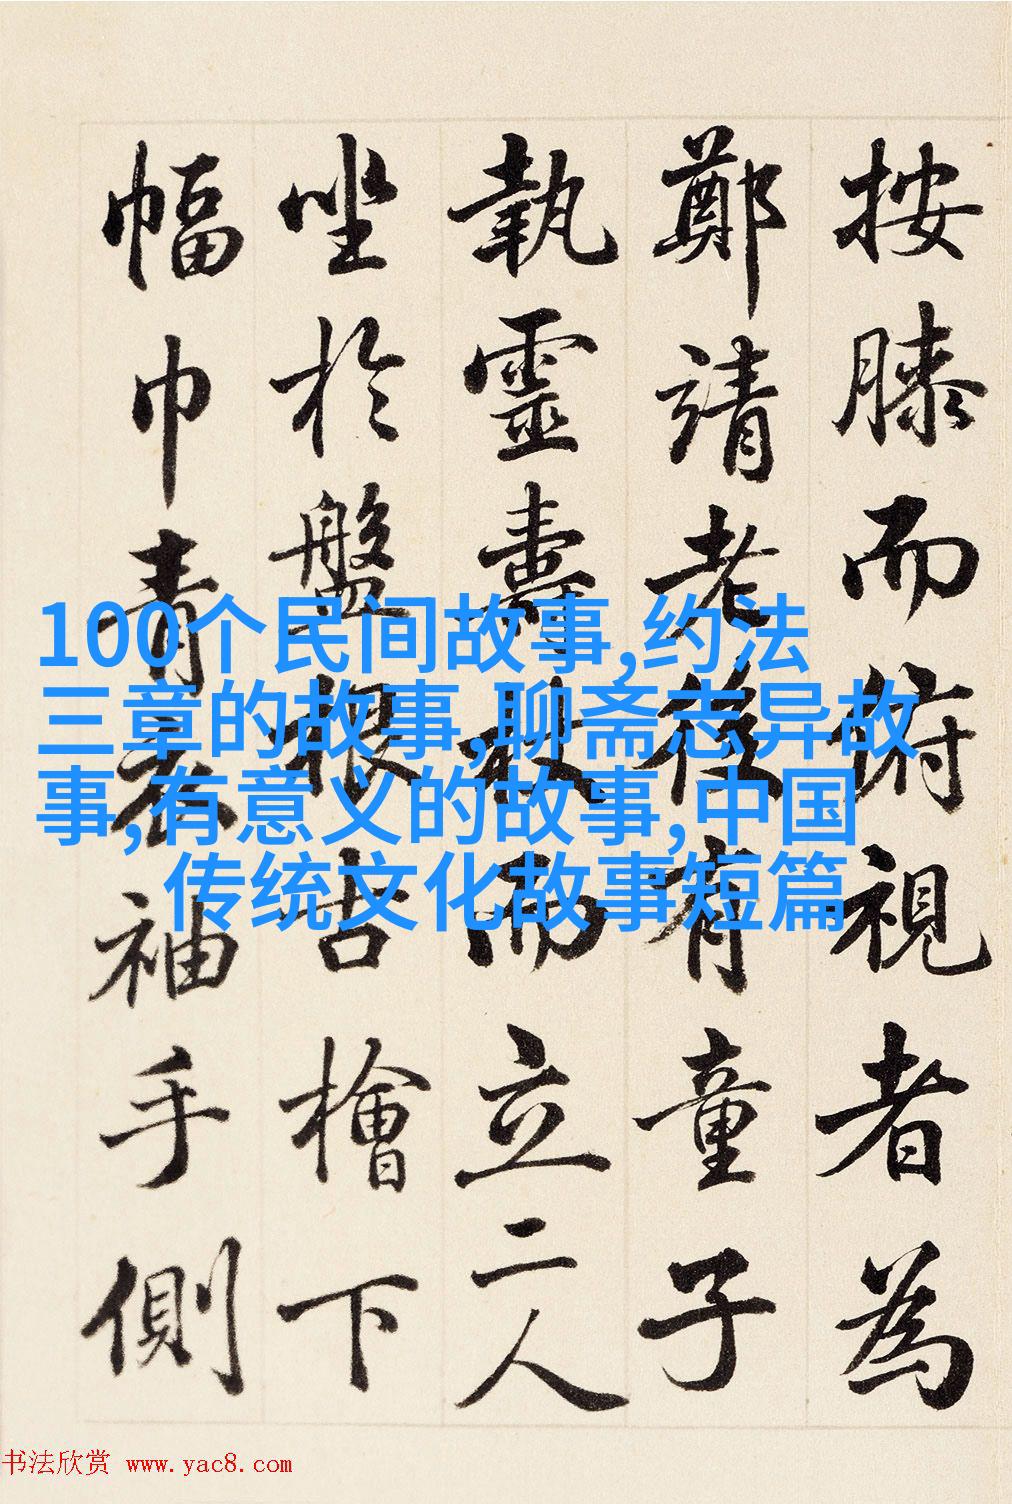 按膝而俯視者為
鄭靖老後有童子
執靈壽杖而立二人
坐於盤根古檜下
幅巾青衣袖手側
100个民间故事,约法
三章的故事,聊斋志异故
事,有意义的故事,中国
传统文化故事短篇
书法欣赏 www.yac8.com